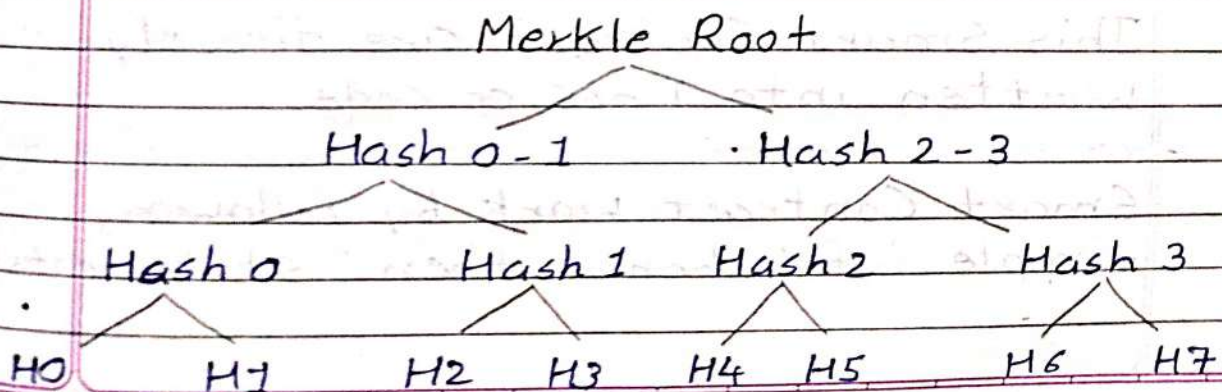 Merkle Root
Hash 0-1 Hash 2-3
Hash 0 Hash 1 Hash 2 Hash 3
H0 H1 H2 H3 H4 H5 H6 H7